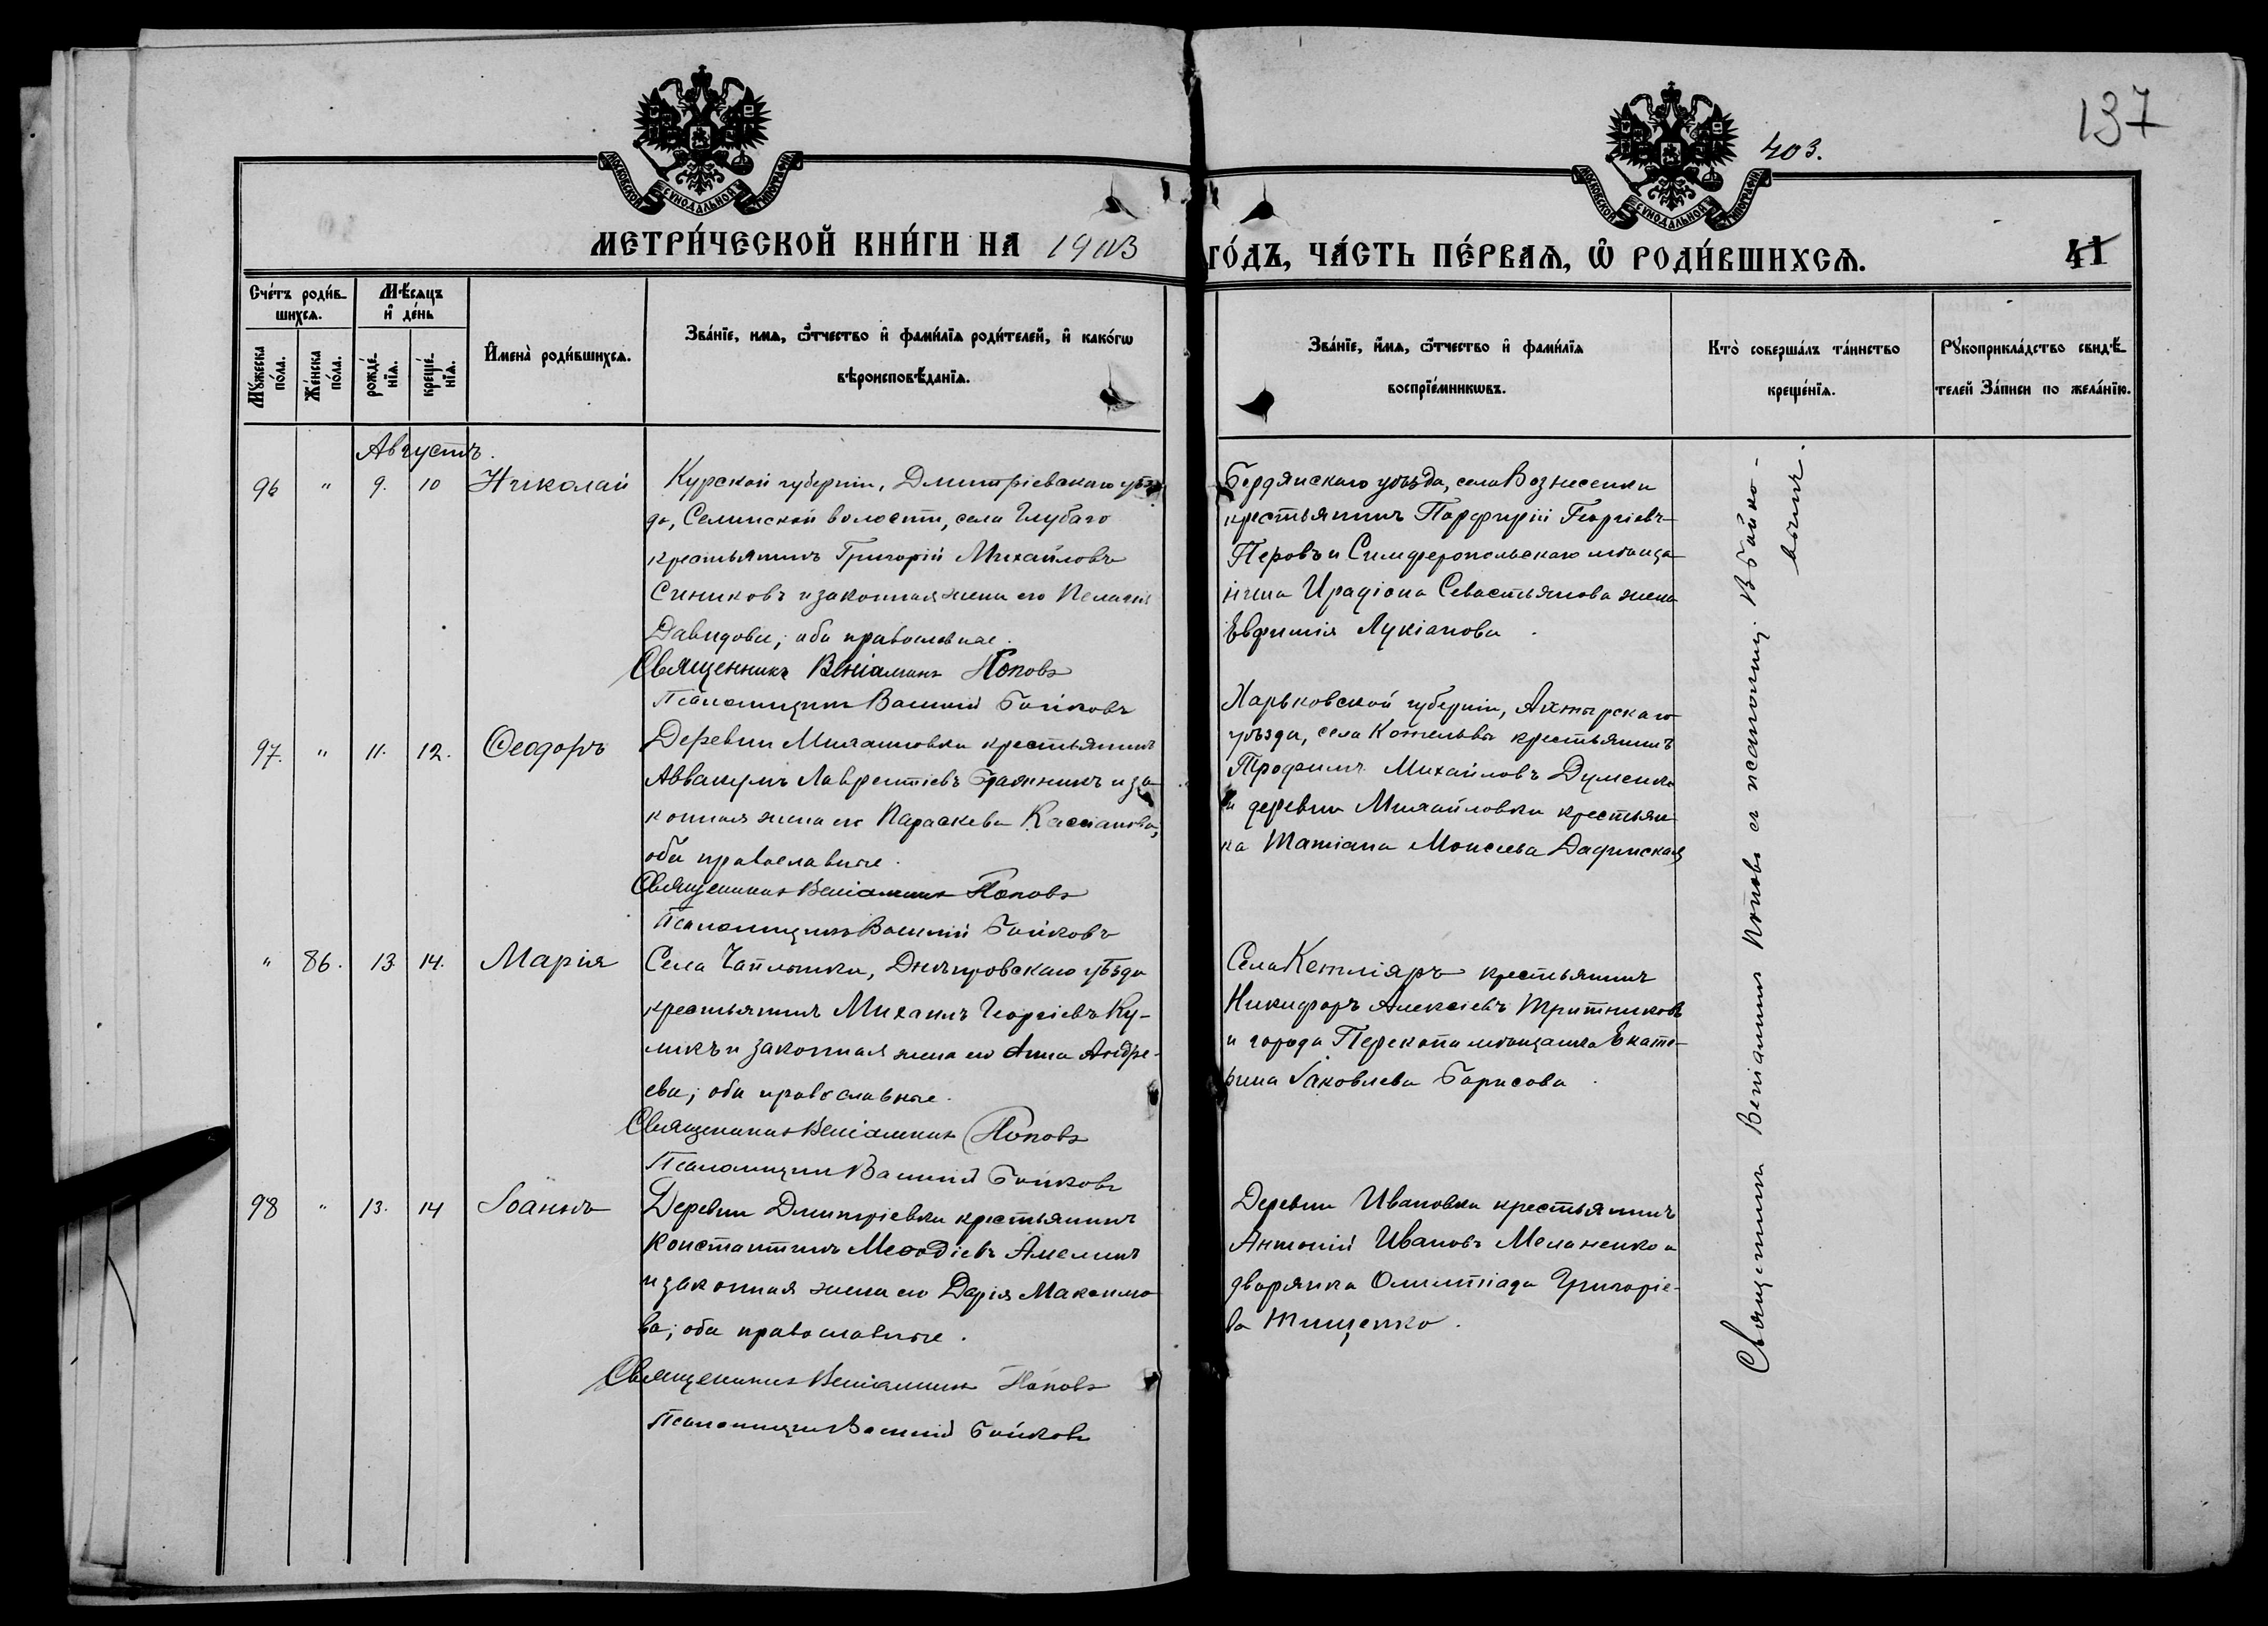 137
403.
МОСКОВСКОЙ СѴНОДАЛЬНОЙ ТИПОГРАФІИ
МОСКОВСКОЙ СѴНОДАЛЬНОЙ ТИПОГРАФІИ
МЕТРИ́ЧЕСКОЙ КНИ́ГИ НА 1903 ГО́ДЪ, ЧА́СТЬ ПЕ́РВАѦ, Ѽ РОДИ́ВШИХСѦ.
41
Сче́тъ роди́в-
шихсѧ.
Мѣ́сяцъ
и҆ де́нь
Мꙋ́жеска
по́ла.
Же́нска
по́ла.
рожде́-
нїѧ.
креще́-
нїѧ.
И҆мена̀ роди́вшихсѧ.
Зва́нїе, и́мѧ, ѻ҆́тчество и҆ фами́лїѧ роди́телей, и҆ како́гѡ
вѣроисповѣ́данїѧ.
Зва́нїе, и҆́мѧ, ѻ҆́тчество и҆ фами́лїѧ
воспрїе́мникѡвъ.
Кто̀ соверша́лъ та́инство
креще́нїѧ.
Рꙋкоприкла́дство свидѣ́-
телей За́писи по жела́нїю.
Августъ.
96 " 9. 10 Николай
Курской губерніи, Дмитріевскаго уѣз-
да, Селинской волости, села Глубаго
крестьянинъ Григорій Михайловъ
Синиковъ и законная жена его Пелагія
Давидова; оба православные.
Священникъ Веніаминъ Поповъ
Псаломщикъ Василій Бойковъ
Бердянскаго уѣзда, села Вознесенки
крестьянинъ Порфирій Георгіевъ
Перовъ и Симферопольскаго мѣща-
нина Иродіона Севастьянова жена
Евфимія Лукіанова.
97. " 11. 12. Ѳеодоръ
Деревни Михайловки крестьянинъ
Аввакумъ Лаврентіевъ и за-
конная жена его Параскева Кассіанова,
оба православные.
Священникъ Веніаминъ Поповъ
Псаломщикъ Василій Бойковъ
Харьковской губерніи, Ахтырскаго
уѣзда, села Котельвы крестьянинъ
Трофимъ Михайловъ Думенко
и деревни Михайловки крестьян-
ка Татіана Моисеева
" 86. 13 14. Марія
Села Чаплынки, Днѣпровскаго уѣзда
крестьянинъ Михаилъ Георгіевъ Ку-
ликъ и законная жена его Анна Андре-
ева; оба православные.
Священникъ Веніаминъ Поповъ
Псаломщикъ Василій Бойковъ
Села крестьянинъ
Никифоръ Алексіевъ Тритниковъ
и города Перекопа мѣщанка Екате-
рина Іаковлева Борисова.
98 " 13. 14 Іоаннъ
Деревни Дмитріевки крестьянинъ
Константинъ Меѳодіевъ Амелинъ
и законная жена его Дарія Максимо-
ва; оба православные.
Священникъ Веніаминъ Поповъ
Псаломщикъ Василій Бойковъ
Деревни Ивановки крестьянинъ
Антоній Ивановъ Меланенко и
дворянка Олимпіада Григоріе-
ва Тищенко.
Священникъ Веніаминъ Поповъ съ псаломщ. В. Бойко-
вымъ.